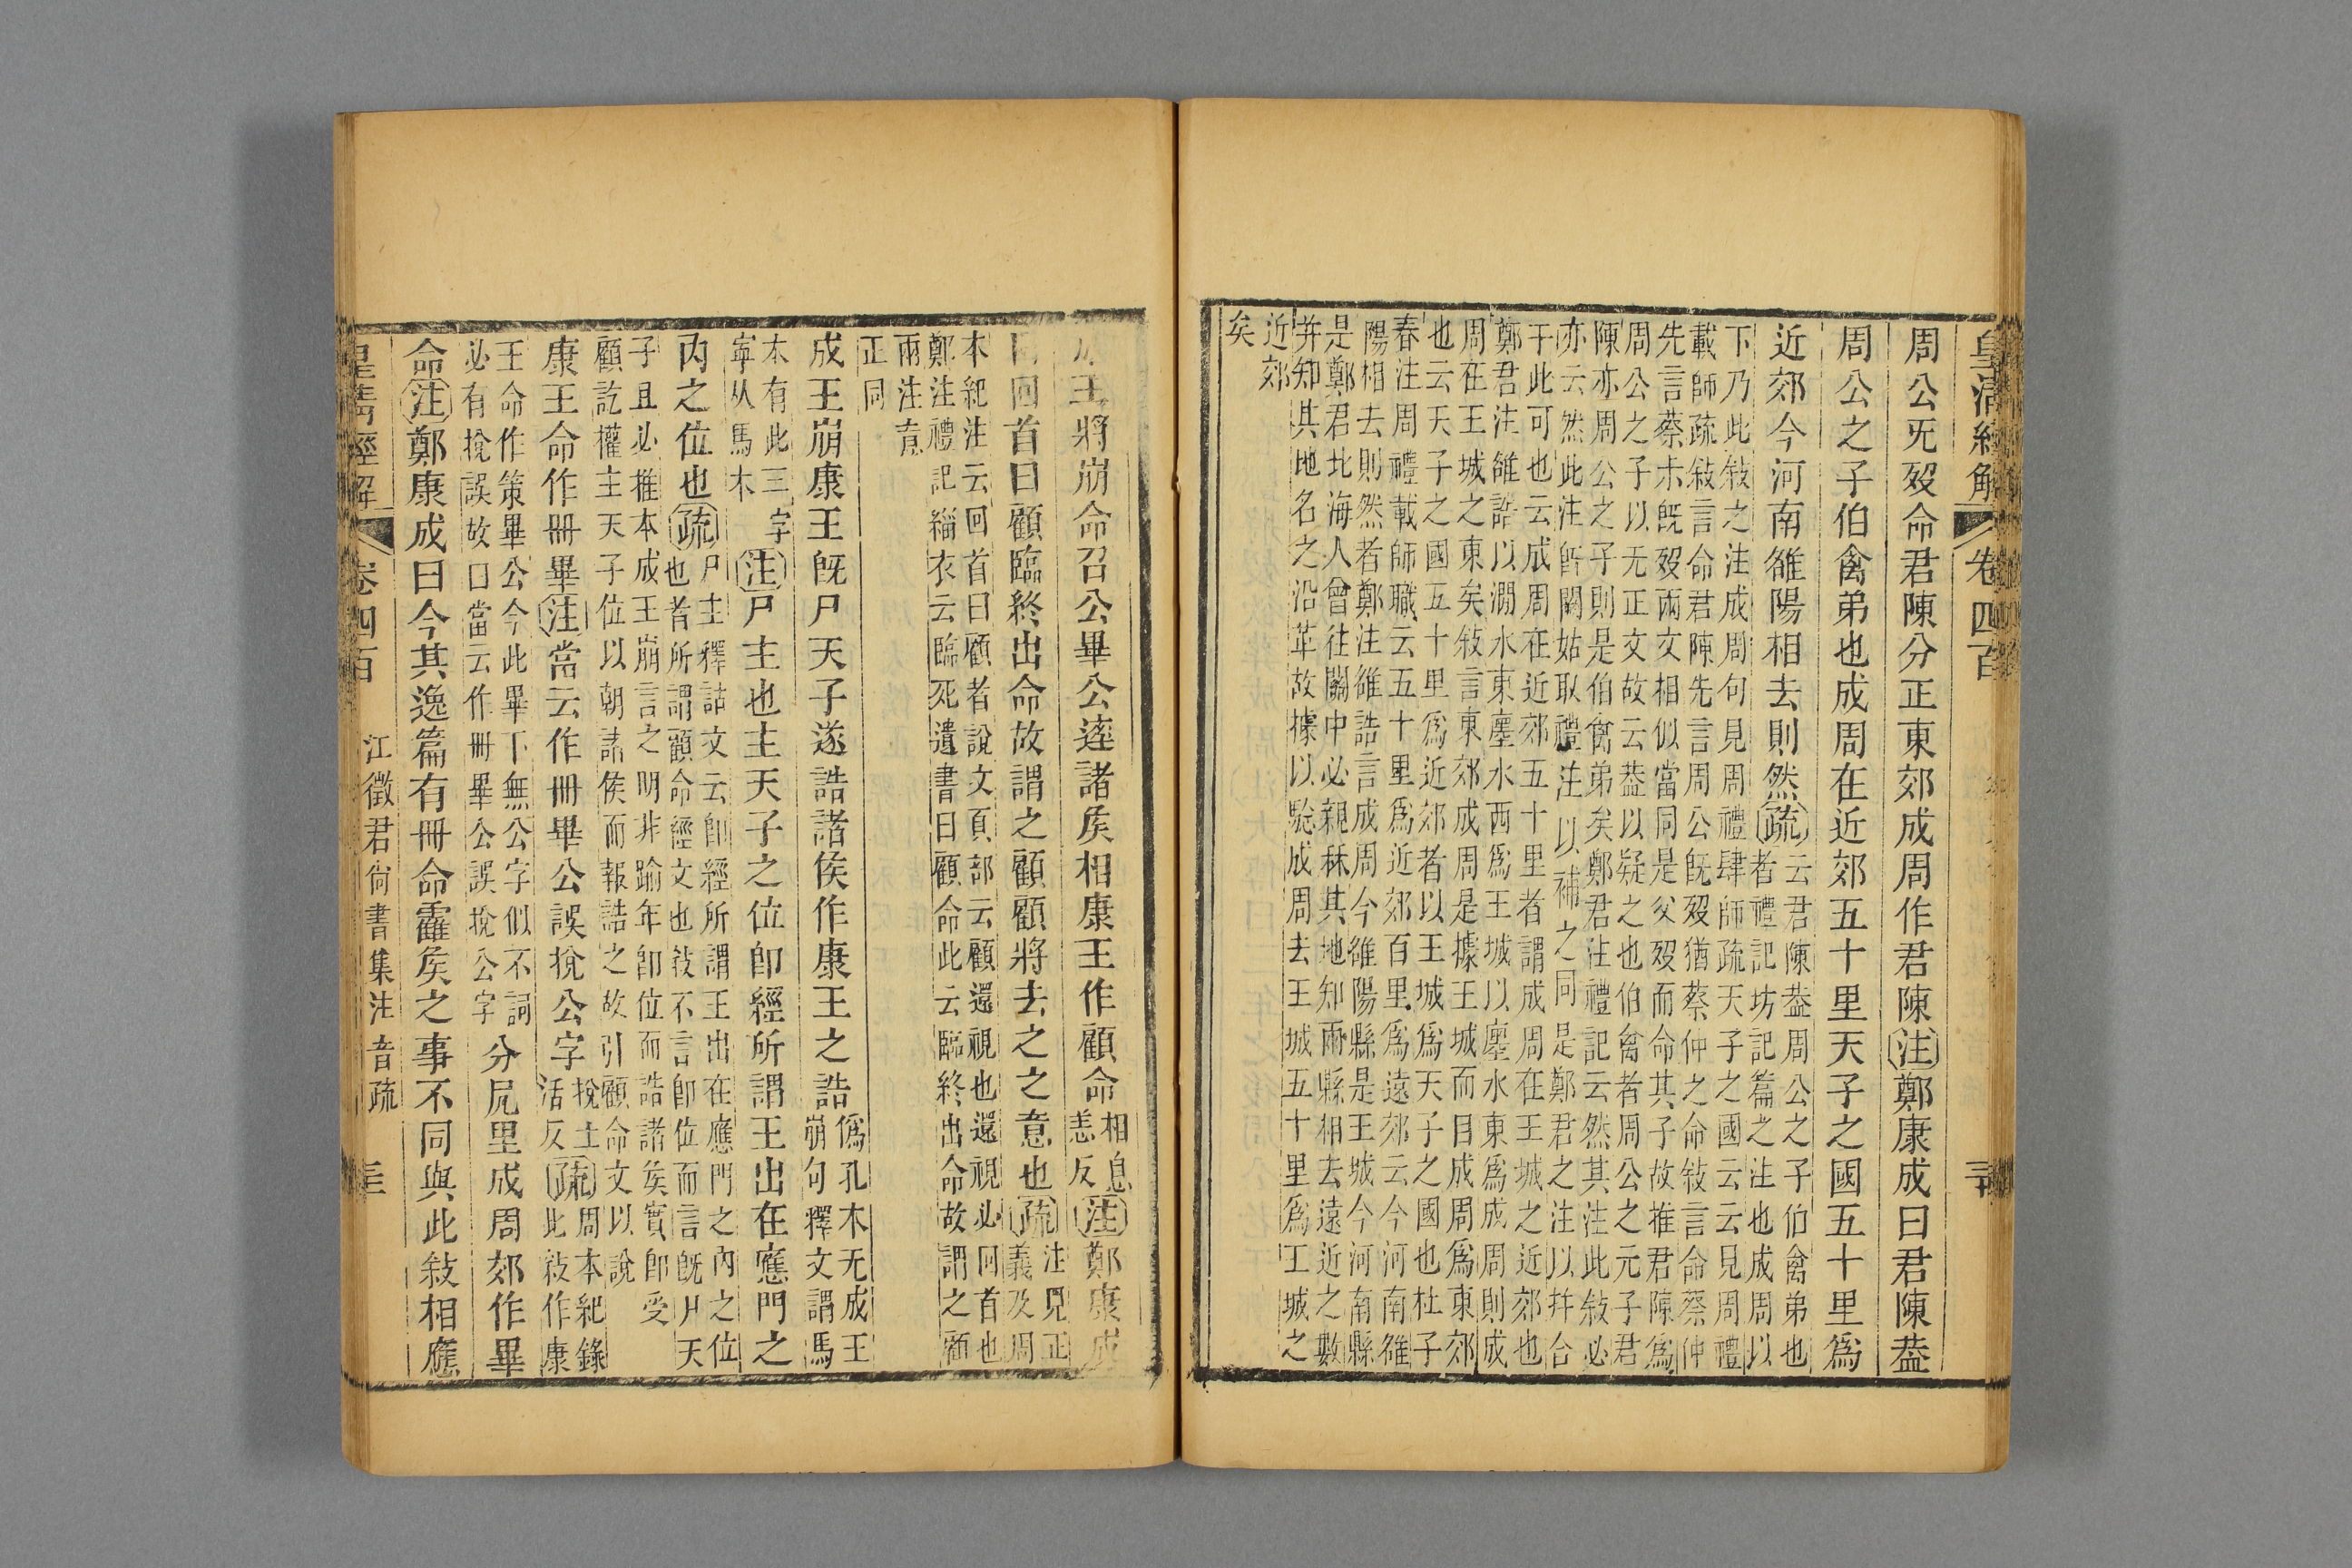 皇清經解　卷四百
周公旡歿命君陳分正東郊成周作君陳注鄭康成曰君陳葢
周公之子伯禽弟也成周在近郊五十里天子之國五十里爲
近郊今河南雒陽相去則然疏
云君陳葢周公之子伯禽弟也
者禮記坊記篇之注也成周以
下乃此敍之注成周句見周禮肆師疏天子之國云云見周禮
載師疏敍言命君陳先言周公旣歿猶蔡仲之命敍言命蔡仲
先言蔡尗旣歿兩文相似當同是父歿而命其子故推君陳爲
周公之子以无正文故云葢以疑之也伯禽者周公之元子君
陳亦周公之子則是伯禽弟矣鄭君注禮記云然其注此敍必
亦云然此注旣闕姑取禮注以補之同是鄭君之注以幷合
于此可也云成周在近郊五十里者謂成周在王城之近郊也
鄭君注雒誥以澗水東瀍水西爲王城以瀍水東爲成周則成
周在王城之東矣敍言東郊成周是據王城而目成周爲東郊
也云天子之國五十里爲近郊者以王城爲天子之國也杜子
春注周禮載師職云五十里爲近郊百里爲遠郊云今河南雒
陽相去則然者鄭注雒誥言成周今雒陽縣是王城今河南縣
是鄭君北海人曾往關中必親秝其地知兩縣相去遠近之數
幷知其地名之沿革故據以騐成周去王城五十里爲王城之
近郊
矣
成王將崩命召公畢公逹諸矦相康王作顧命
相息
恙反
注鄭康成
曰回首曰顧臨終出命故謂之顧顧將去之之意也疏
注見正
義及周
本紀注云回首曰顧者說文頁部云顧還視也還視必回首也
鄭注禮記緇衣云臨死遺書曰顧命此云臨終出命故謂之顧
兩注意
正同
成王崩康王旣尸天子遂誥諸侯作康王之誥
僞孔本无成王
崩句釋文謂馬
本有此三字
寧从馬本
注尸主也主天子之位卽經所謂王出在應門之
內之位也疏
尸主釋詁文云卽經所謂王出在應門之內之位
也者所謂顧命經文也敍不言卽位而言旣尸天
子且必推本成王崩言之明非踰年卽位而誥諸矦實卽受
顧訖權主天子位以朝諸侯而報誥之故引顧命文以說
康王命作冊畢注當云作冊畢公誤挩公字
挩土
活反
疏
周本紀錄
此敍作康
王命作策畢公今此畢下無公字似不詞
必有挩誤故口當云作冊畢公誤挩公字
分凥里成周郊作畢
命注鄭康成曰今其逸篇有冊命霍矦之事不同與此敍相應
皇清經解　卷四百　江徵君尙書集注音疏